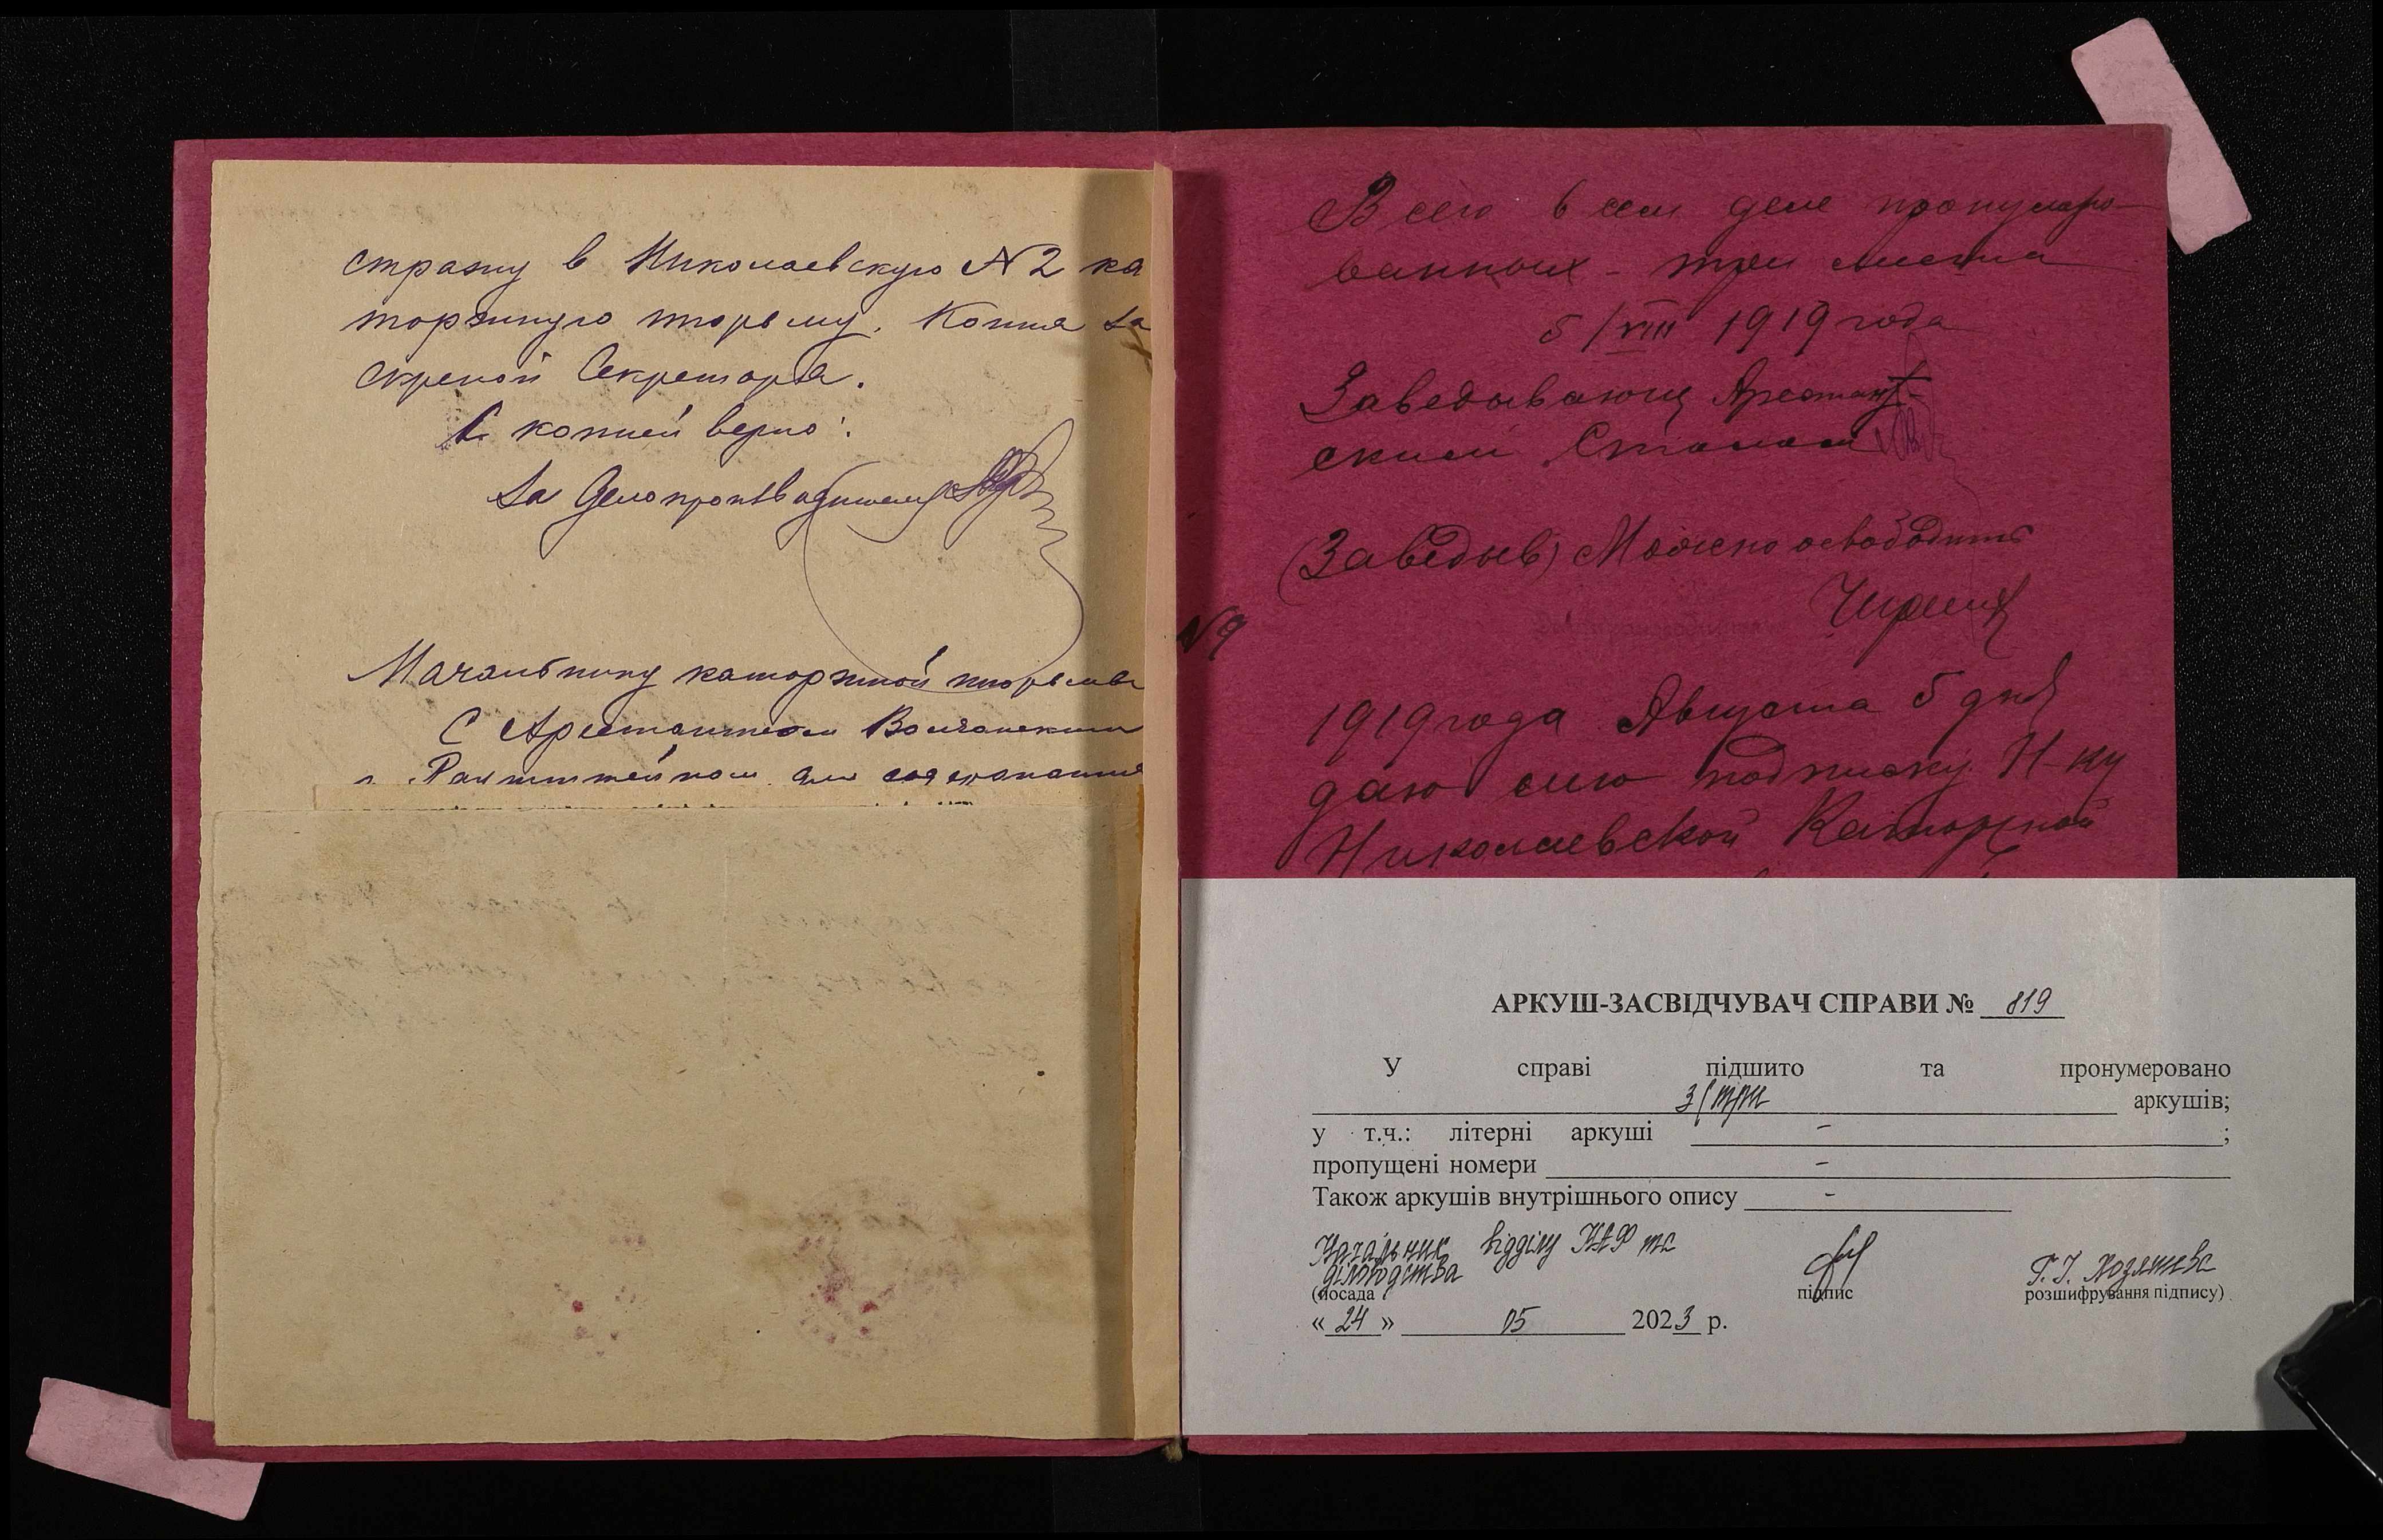 стражу в Николаевскую N2 ка
торжную тюрьму. Копия за
скрепой Секретаря.
С копией верно:
За Делопроизводителя
Начальнику каторжной тюрьмы
С Арестантом Волчанским
и Ранштейном для содержания
Всего в сем деле пронумеро-
ванных - три листа
5/VIII 1919 года
Заведывающ Арестант-
ским Столом
(Заведыв) Можно освободить
N9
1919 года Августа 5 дня
даю сию подписку Н-ку
Николаевской Каторжной
АРКУШ-ЗАСВІДЧУВАЧ СПРАВИ № 819
У справі підшито та пронумеровано
3 (три аркушів;
у т.ч.: літерні аркуші - ;
пропущені номери -
Також аркушів внутрішнього опису -
Начальник відділу НАФ та
діловодства
(посада підпис розшифрування підпису)
« 24 » 05 2023 р.